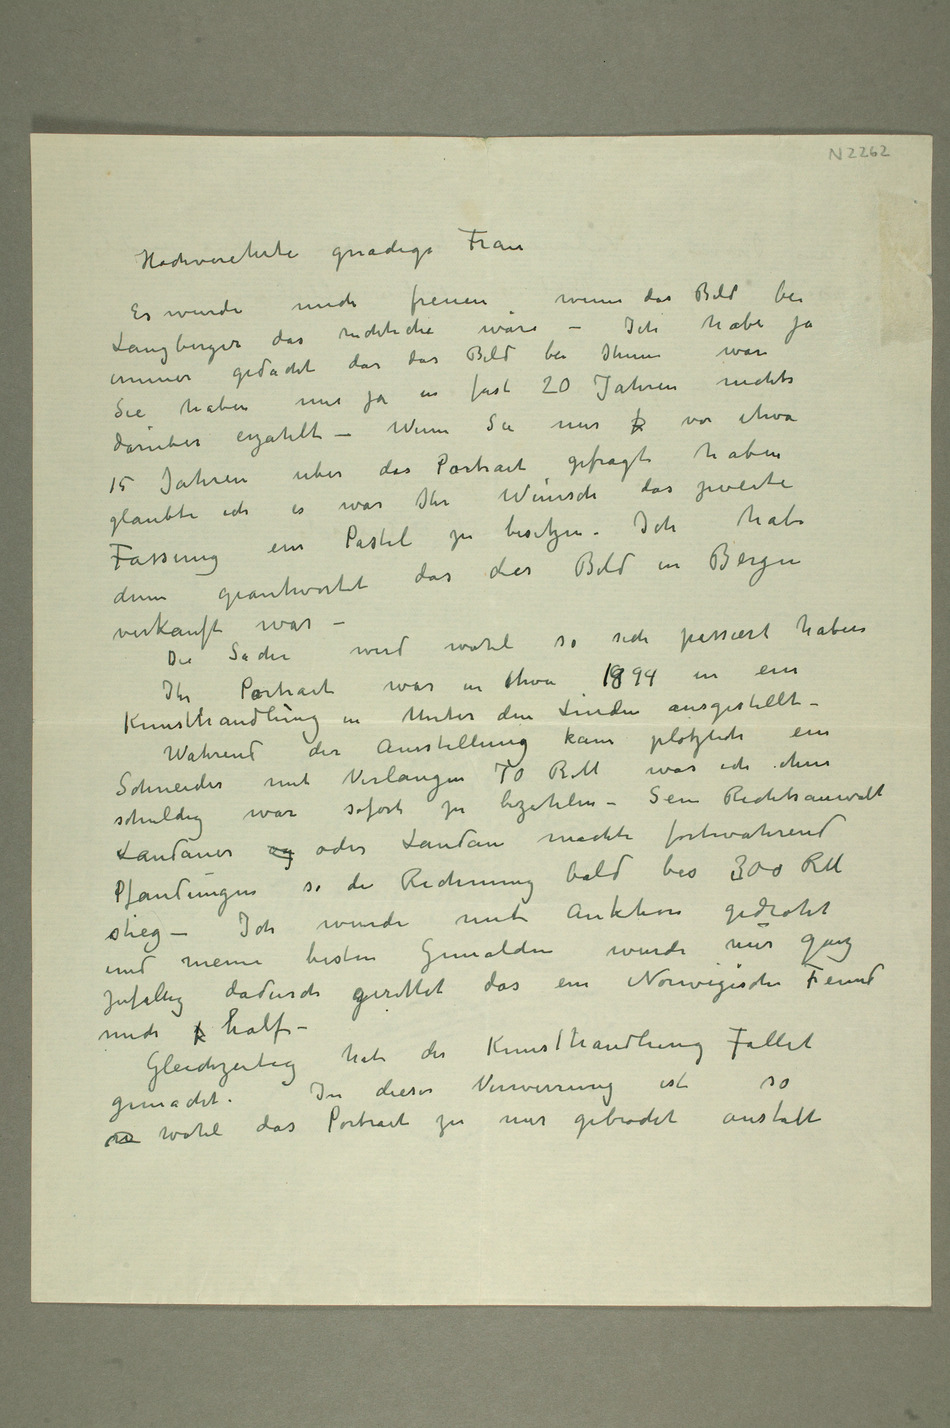 N 2262
Hochverehrte gnadige Frau
Es wurde mich freuen wenn das Bild bei
Langberger das richtiche wäre – Ich habe ja
immer gedacht das das Bild bei Ihnen war
Sie haben mir ja in fast 20 Jahren nichts
darüber erzahlt – Wenn Sie mir vor etwa
15 Jahren uber das Portrait gefragt haben
glaubte ich es war Ihr Wunsch das zweite
Fassung ein Pastel zu besitzen. Ich habe
denn geantwortet das das Bild in Bergen
verkauft war –
Die Sache wird wohl so sich passiert haben
Ihr Portrait war in etwa 1894 in ein
Kunsthandlung in Unter den Linden ausgestellt –
Wahrend der Ausstellung kam plotzlich ein
Schneider mit Verlangen 70 RM was ich ihm
schuldig war sofort zu bezahlen – Sein Rechtsanwalt
Landauer og oder Landau machte fortwahrend
Pfandungen so die Rechnung bald bis 300 RM
stieg – Ich wurde mit Auktion gedroht
und meine besten Gemalden wurde mir ganz
zufallig dadurch gerettet das ein Norwegischer Feund
mich half –
Gleichzeitig hat der Kunsthandlung Fallit
gemacht. In dieser Verwirrung ist so
wohl das Portrait zu mir gebracht anstatt